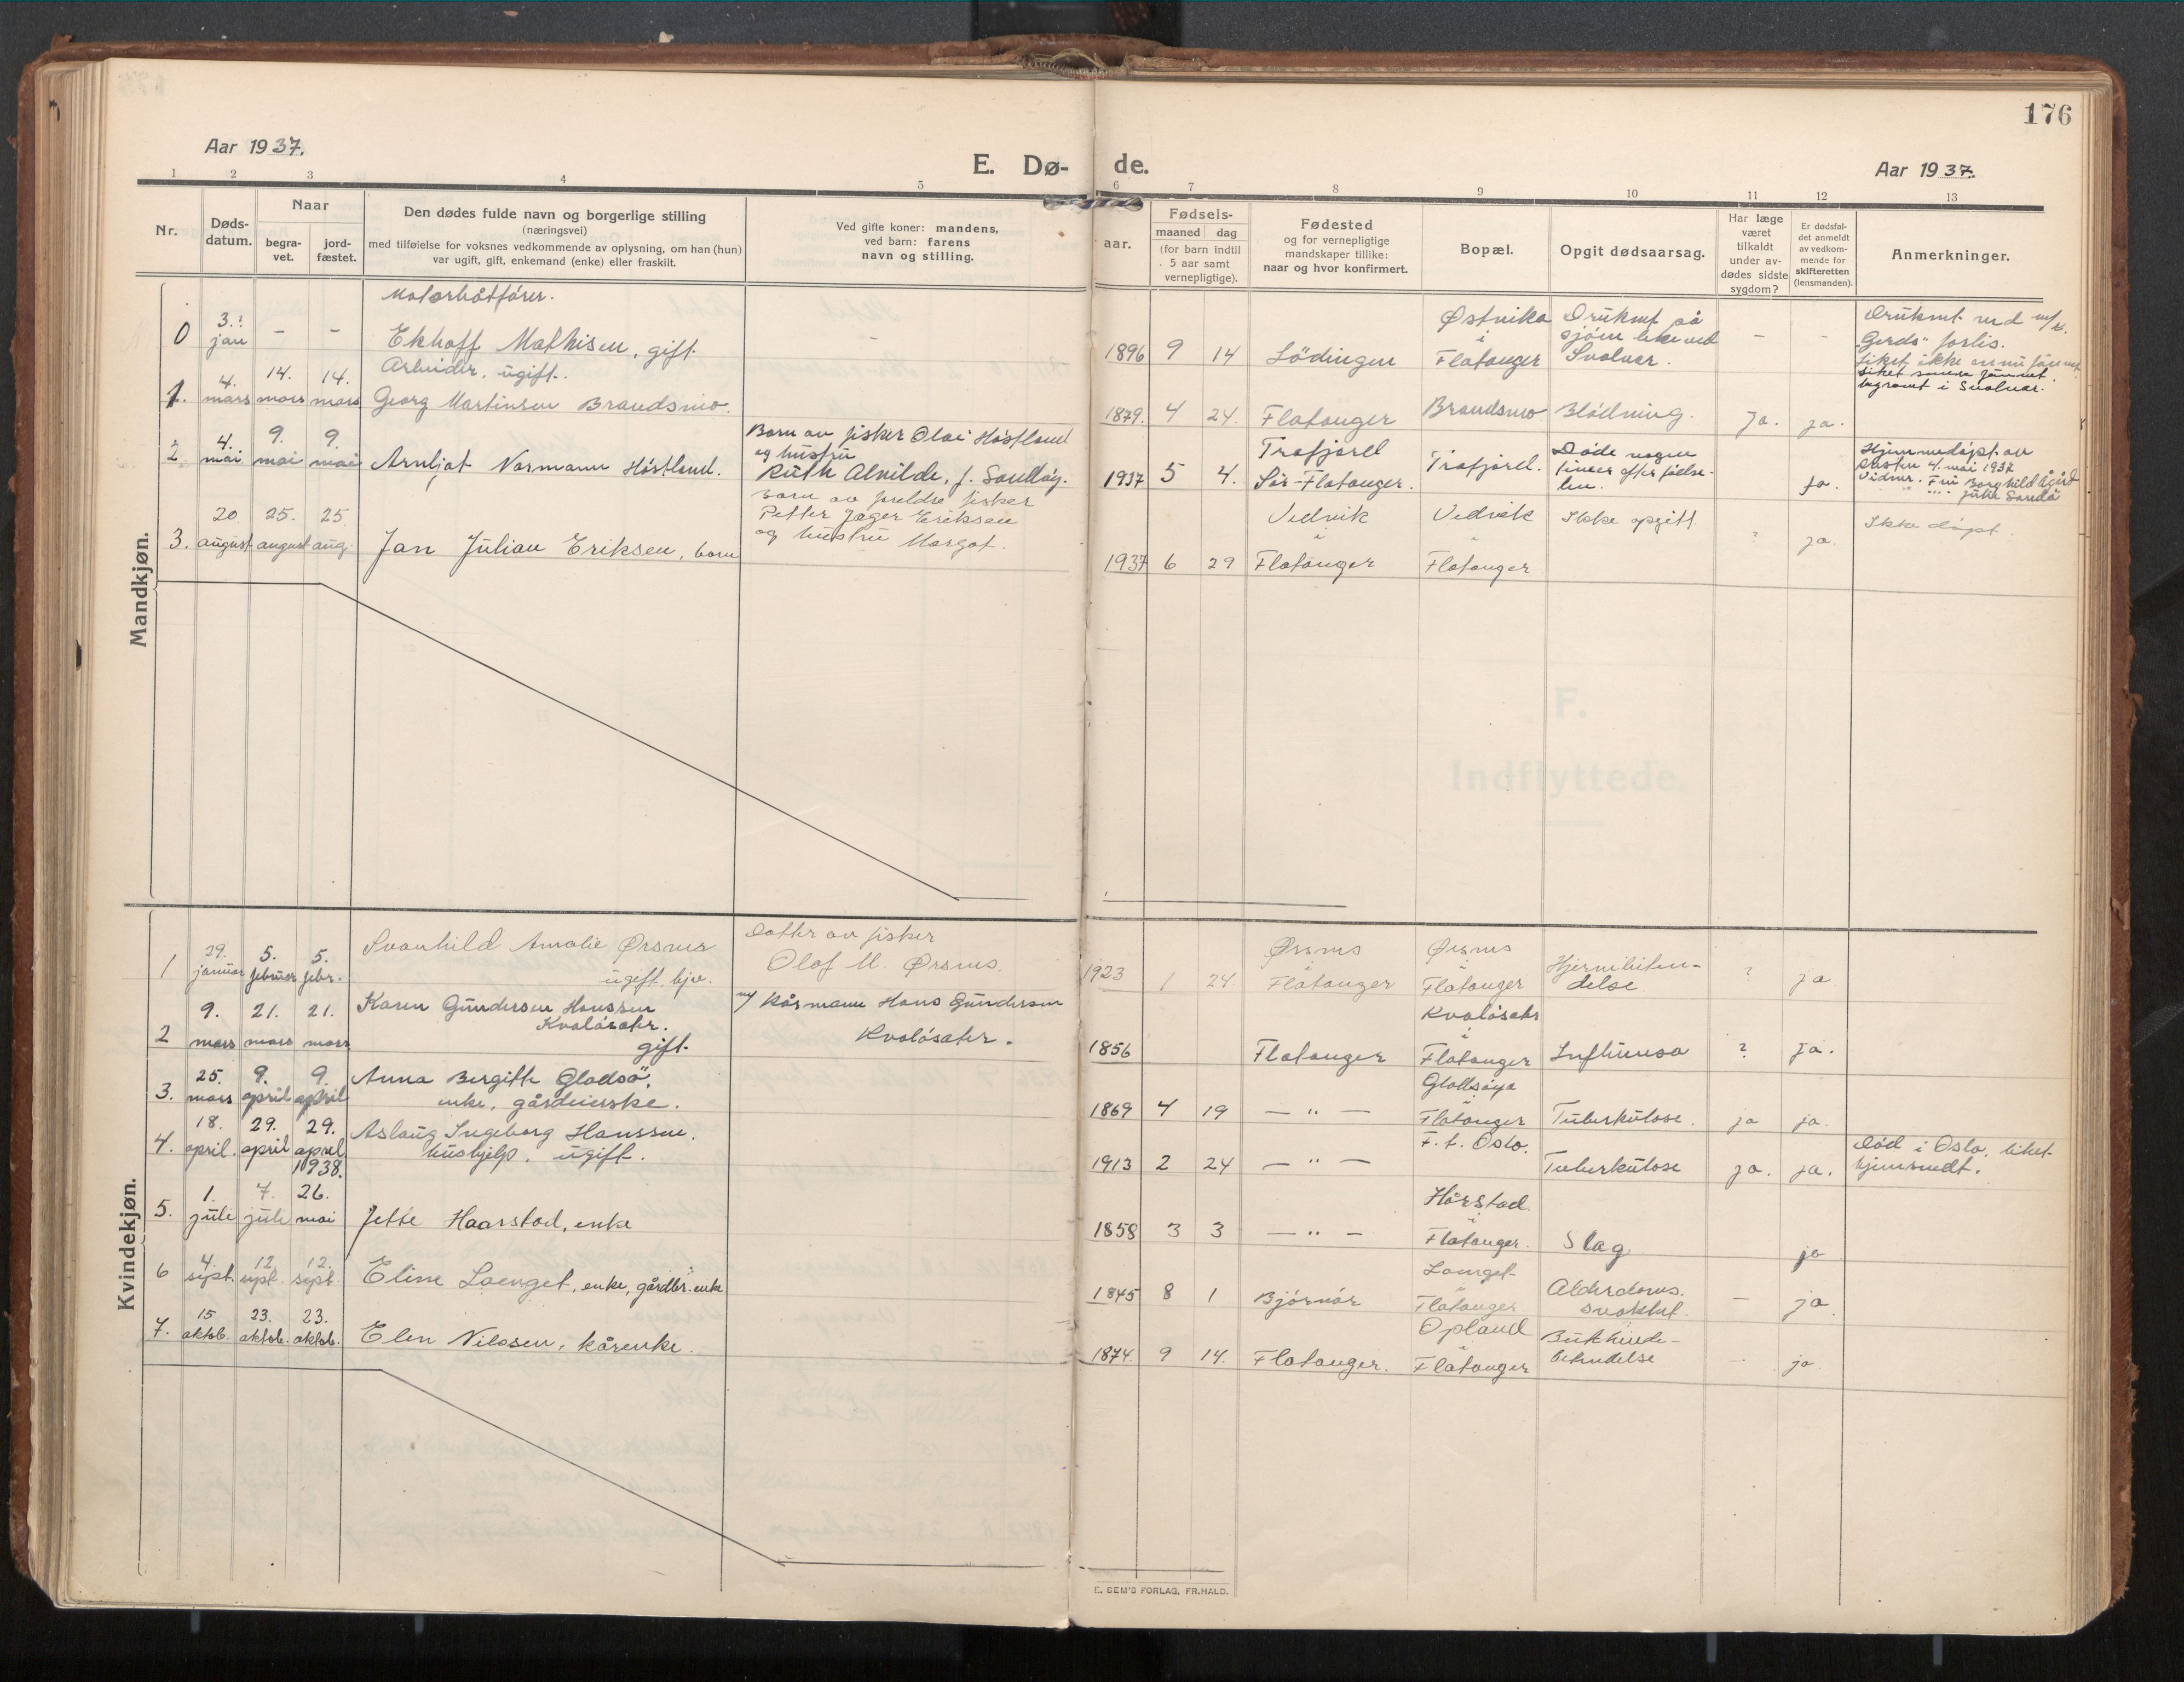 176
Aar 1937.
E. Dø- de.
Aar 1937.
1 2 3 4 5 6 7 8 9 10 11 12 13
Nr.
Døds-
datum.
Naar
begra-
vet.
jord-
fæstet.
Den dødes fulde navn og borgerlige stilling
(næringsvei)
med tilføielse for voksnes vedkommende av oplysning, om han (hun)
var ugift, gift, enkemand (enke) eller fraskilt.
Ved gifte koner: mandens,
ved barn: farens
navn og stilling.
Fødsels-
aar.
maaned dag
(for barn indtil
5 aar samt
vernepligtige).
Fødested
og for vernepligtige
mandskaper tillike:
naar og hvor konfirmert.
Bopæl.
Opgit dødsaarsag.
Har læge
været
tilkaldt
under av-
dødes sidste
sygdom?
Er dødsfal-
det anmeldt
av vedkom-
mende for
skifteretten
(lensmanden).
Anmerkninger.
Mandkjøn.
0
3.
jan
-
-
Motorbåtfører.
Ekhoff Mathisen, gift.
-
1896 9 14
Lödingen
Østvika
i
Flatanger
Druknet på
sjøen like ved
Svolvær.
-
-
Druknet ved m/k.
"Gerds" forlis.
Liket ikke ennu funnet.
Liket senere funnet.
begravet i Svolvær.
1.
4.
mars
14.
mars
14.
mars
Arbeider, ugift.
Georg Martinsen Brandsmo.
1879. 4 24.
Flatanger
Brandsmo
Blödning.
Ja.
ja.
2.
4.
mai
9.
mai
9.
mai
Arnljot Normann Höstland.
Barn av fisker Olai Höstland
og hustru
Ruth Alvilde, f. Sandløy.
1937 5 4.
Trafjord
Sör-Flatanger.
Trafjord.
Døde nogen
timer efter födse-
len.
ja.
Hjemmedøpt av
4. mai 1937
Vidner. Fru Borghild Ågård
" " Julie Sandö
3.
20
august
25.
august
25.
aug.
Jan Julian Eriksen, barn
Barn av foreldre fisker
Petter Jæger Eriksen
og hustru Margot.
1937 6 29
Vedvik
i
Flatanger
Vedvik
"
Flatanger
Ikke opgitt
?
ja.
Ikke döpt.
F.
Indflyttede.
Kvindekjøn.
1
29.
januar
5.
februar
5.
febr.
Svanhild Amalie Ørsnes
ugift, hjv.
Datter av fisker
Olaf M. Ørsnes.
1923 1 24
Ørsnes
"
Flatanger
Ørsnes
"
Flatanger
Hjernebeten-
delse
?
ja
2
9.
mars
21.
mars
21.
mars
Karen Gundersen Hanssen
Kvalösæter.
gift.
m/ Kårmann Hans Gundersen
Kvalösæter.
1856
Flatanger
Kvalösæter
i
Flatanger
Influensa
?
Ja.
3.
25.
mars
9.
april
9.
april
Anna Bergitte Gladsö,
enke, gårdeierske.
1869 4 19
— " —
Gladsöya
"
Flatanger
Tuberkulose.
ja
ja.
4.
18.
april.
29.
april
29.
april
Aslaug Ingeborg Hanssen.
hushjelp. ugift.
1913 2 24
— " —
F. t. Oslo.
Tuberkulose
ja.
ja.
Död i Oslo, liket
hjemsendt.
5.
1.
juli
7.
juli
1938.
26.
mai
Jette Haarstad, enke
1858 3 3
— " —
Hårstad
i
Flatanger.
Slag
ja
6
4.
sept.
12
sept.
12.
sept.
Eline Laenget, enke, gårdbr. enke
1845 8 1
Bjørnör
Laenget
"
Flatanger
Alderdoms-
svakhet.
-
ja
7.
15
oktob.
23.
oktob.
23.
oktob.
Elen Nilssen, kårenke.
1874. 9 14.
Flatanger.
Opland
"
Flatanger
Bukhinde-
betendelse
-
ja.
E. SEM'S FORLAG, FR.HALD.